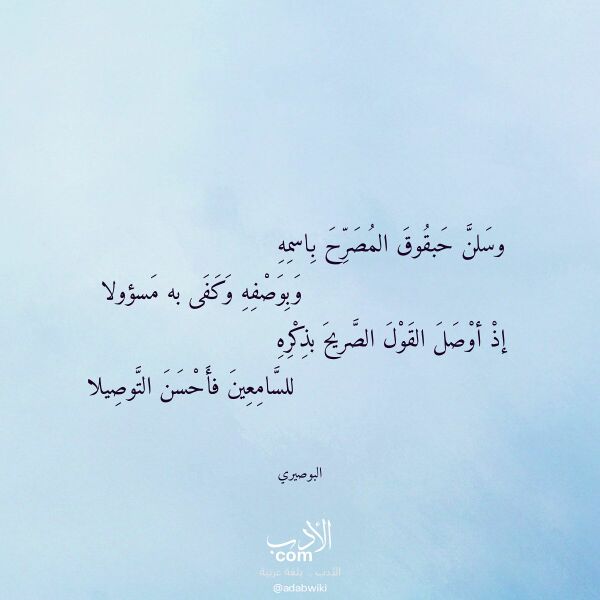 وسَلنَّ حَبقُوقَ المُصَرِّحَ بِاسمِهِ
وَبِوَصْفِهِ وَكَفَى به مَسؤولا
إذْ أوْصَلَ القَوْلَ الصَّريحَ بذِكْرِهِ
للسَّامِعِينَ فأَحْسَنَ التَّوصِيلا
البوصيري
الأدب
com
الأدب .. بلغة عربية
@adabwiki